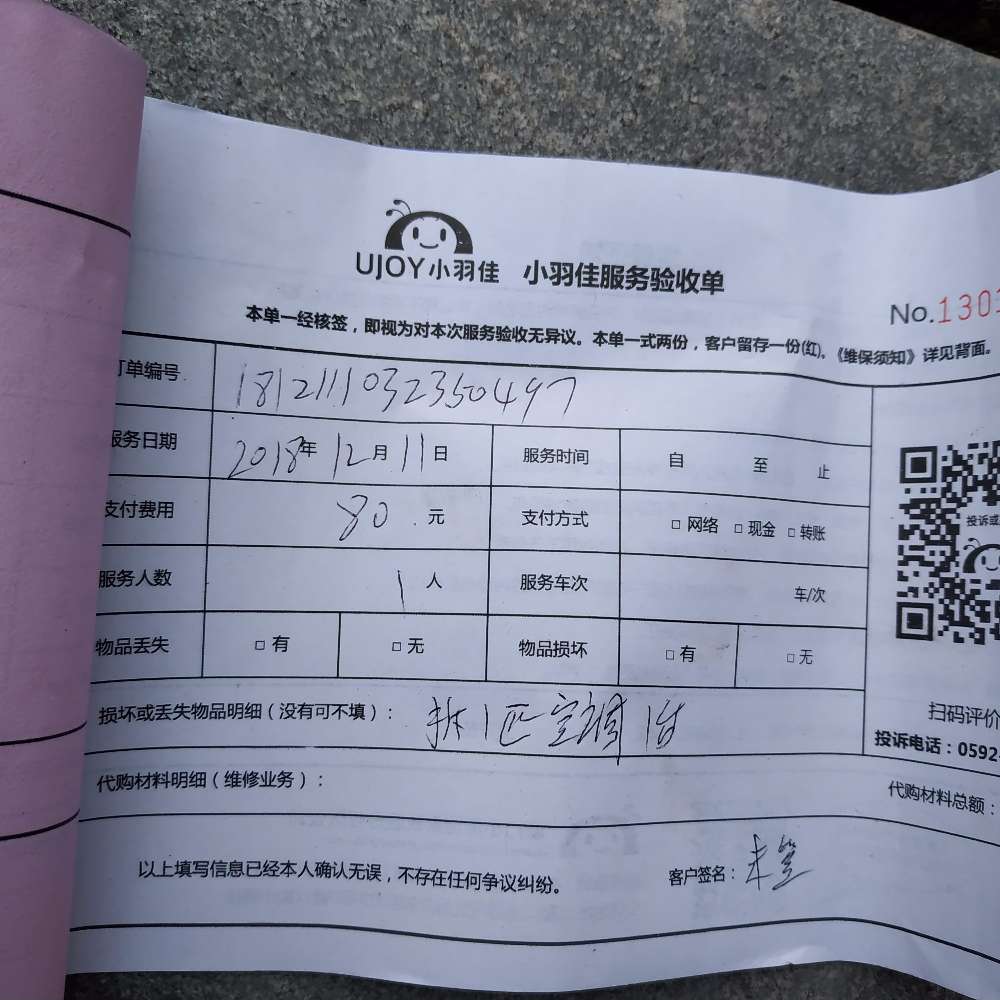 UJOY小羽佳 小羽佳服务验收单
No.130
本单一经核签，即视为对本次服务验收无异议。本单一式两份，客户留存一份(红)。《维保须知》详见背面。
订单编号 1812111032350497
服务日期 2018年 12月 11日 服务时间 自 至 止
支付费用 80.元 支付方式 □ 网络 □ 现金 □ 转账
服务人数 1 人 服务车次 车/次
物品丢失 □ 有 □ 无 物品损坏 □ 有 □ 无
投诉或
扫码评价
投诉电话：0592-
损坏或丢失物品明细（没有可不填）： 拆1匹空调1台
代购材料明细（维修业务）： 代购材料总额：
以上填写信息已经本人确认无误，不存在任何争议纠纷。 客户签名： 未签